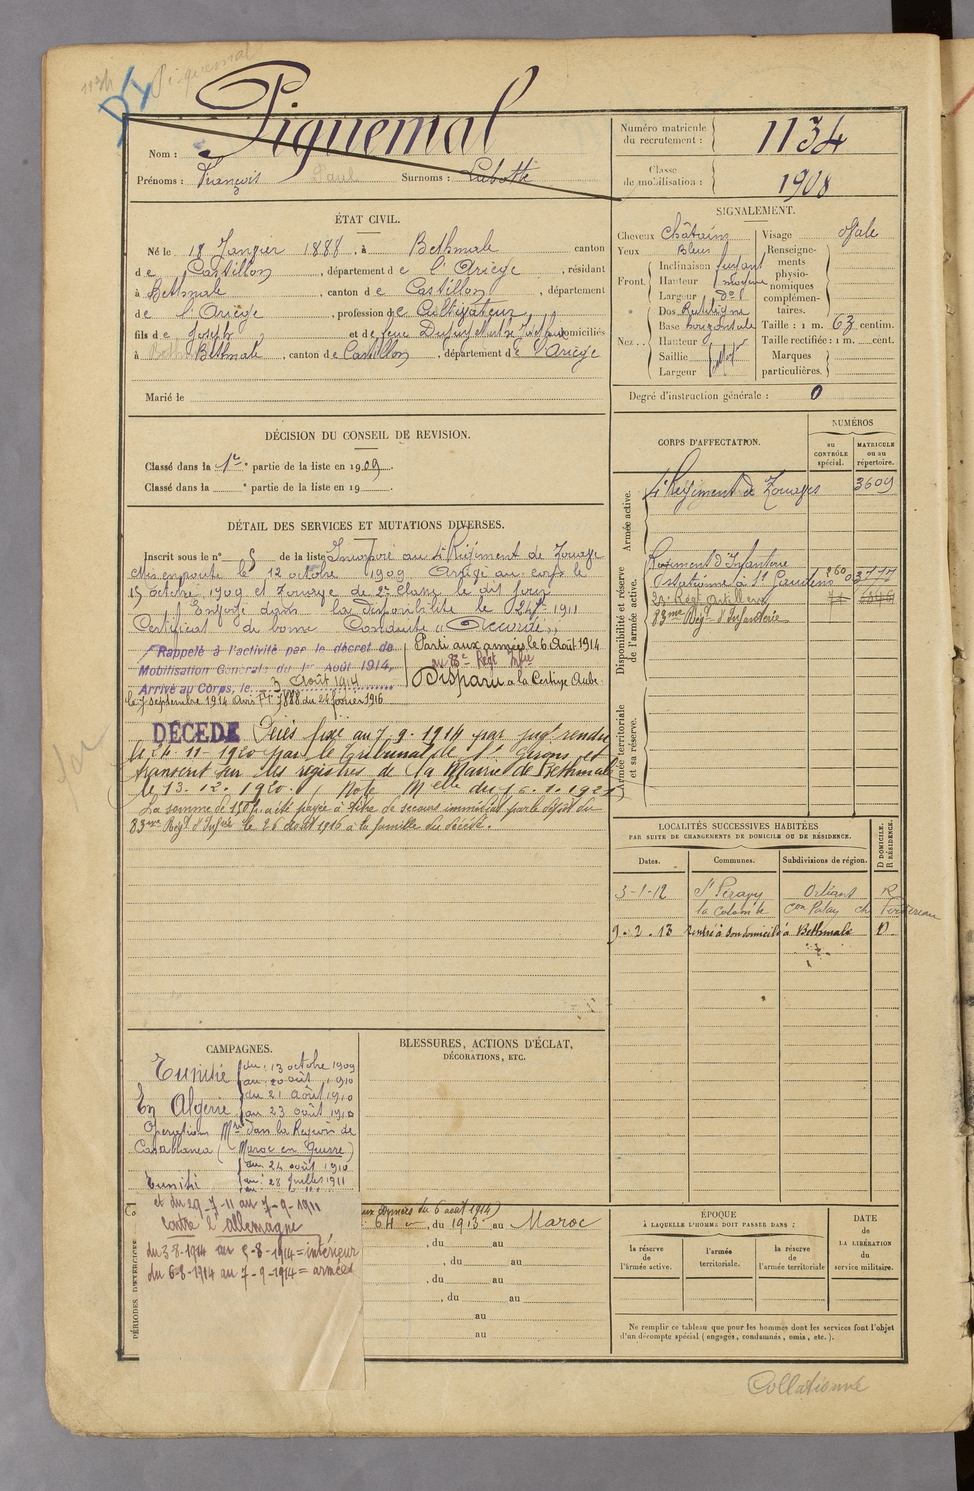 Piquemal
Nom : Piquemal
Prénoms : François Paul Surnoms :
Numéro matricule
du recrutement : 1134
Classe
de mobilisation : 1908
ÉTAT CIVIL.
Né le 18 Janvier 1888, à Bethmale canton
de Castillon, département de l'Ariège, résidant
à Bethmale, canton de Castillon, département
de l'Ariège, profession de Cultivateur,
fils de Joseph et de feue domiciliés
à Bethmale, canton de Castillon, département de l'Ariège
Marié le
SIGNALEMENT.
Cheveux Châtains Visage Ovale
Yeux Bleus Renseigne-
ments
physio-
nomiques
complémen-
taires.
Front Inclinaison fuyant
Hauteur moyenne
Largeur do
Nez Dos Rectiligne
Base horizontale
Hauteur
Saillie
Largeur
Taille : 1 m. 63 centim.
Taille rectifiée : 1 m. cent.
Marques
particulières.
Degré d'instruction générale : 0
DÉCISION DU CONSEIL DE REVISION.
Classé dans la 1re partie de la liste en 1909.
Classé dans la e partie de la liste en 19
CORPS D'AFFECTATION.
NUMÉROS
au
CONTRÔLE
spécial.
MATRICULE
ou au
répertoire.
Armée active.
4e Régiment de Zouaves 3609
Disponibilité et réserve
de l'armée active.
Régiment d'Infanterie
stationné à St Gaudens
23e Régt Artillerie
83me Régt d'Infanterie
Armée territoriale
et sa réserve.
DÉTAIL DES SERVICES ET MUTATIONS DIVERSES.
Inscrit sous le n° 5 de la liste Incorporé au 4e Régiment de Zouaves
Mis en route le 12 octobre 1909. Arrivé au corps le
15 octobre 1909 et Zouave de 2e Classe le dit jour
Envoyé dans la disponibilité le 24 7bre 1911
Certificat de bonne Conduite "Accordé"
Rappelé à l'activité par le décret de
Mobilisation Générale du 1er Août 1914.
Arrivé au Corps, le 3 Août 1914
Parti aux armées le 6 Août 1914
au 83e Régt Infie
Disparu à la Certige Aube
le 7 septembre 1914 Avis FT 7888 du 24 février 1916
DÉCÉDÉ Décès fixé au 7.9.1914 par jugt rendu
le 24-11-1920 par le Tribunal de St Girons et
transcrit sur les registres de la Mairie de Bethmale
le 13.12.1920. Note Melle du 16.1.1921
La somme de 150f a été payée à titre de secours immédiat par le dépôt du
83me Régt d'Infie le 26 août 1916 à la famille du décédé.
LOCALITÉS SUCCESSIVES HABITÉES
PAR SUITE DE CHANGEMENTS DE DOMICILE OU DE RÉSIDENCE.
Dates. Communes. Subdivisions de région.
D DOMICILE.
R RÉSIDENCE.
3-1-12 St Péravy Orléans R
la Colombe con Patay
9.2.13 rentré à son domicile à Bethmale D
CAMPAGNES.
Tunisie du 13 octobre 1909
au 20 août 1910
En Algérie du 21 Août 1910
au 23 août 1910
Opérations Mres dans la Région de
Casablanca (Maroc en Guerre)
du 24 août 1910
Tunisie au 28 Juillet 1911
et du 29-7-11 au 7-9-1911
Contre l'Allemagne
du 3-8-1914 au 5-8-1914 = intérieur
du 6-8-1914 au 7-9-1914 = armées
BLESSURES, ACTIONS D'ÉCLAT,
DÉCORATIONS, ETC.
PÉRIODES D'EXERCICES
aux armées du 6 août 1914)
, du 1913 au Maroc
, du au
, du au
, du au
, du au
au
au
ÉPOQUE
À LAQUELLE L'HOMME DOIT PASSER DANS :
la réserve
de
l'armée active.
l'armée
territoriale.
la réserve
de
l'armée territoriale
DATE
de
LA LIBÉRATION
du
service militaire.
Ne remplir ce tableau que pour les hommes dont les services font l'objet
d'un décompte spécial (engagés, condamnés, omis, etc.).
Collationné